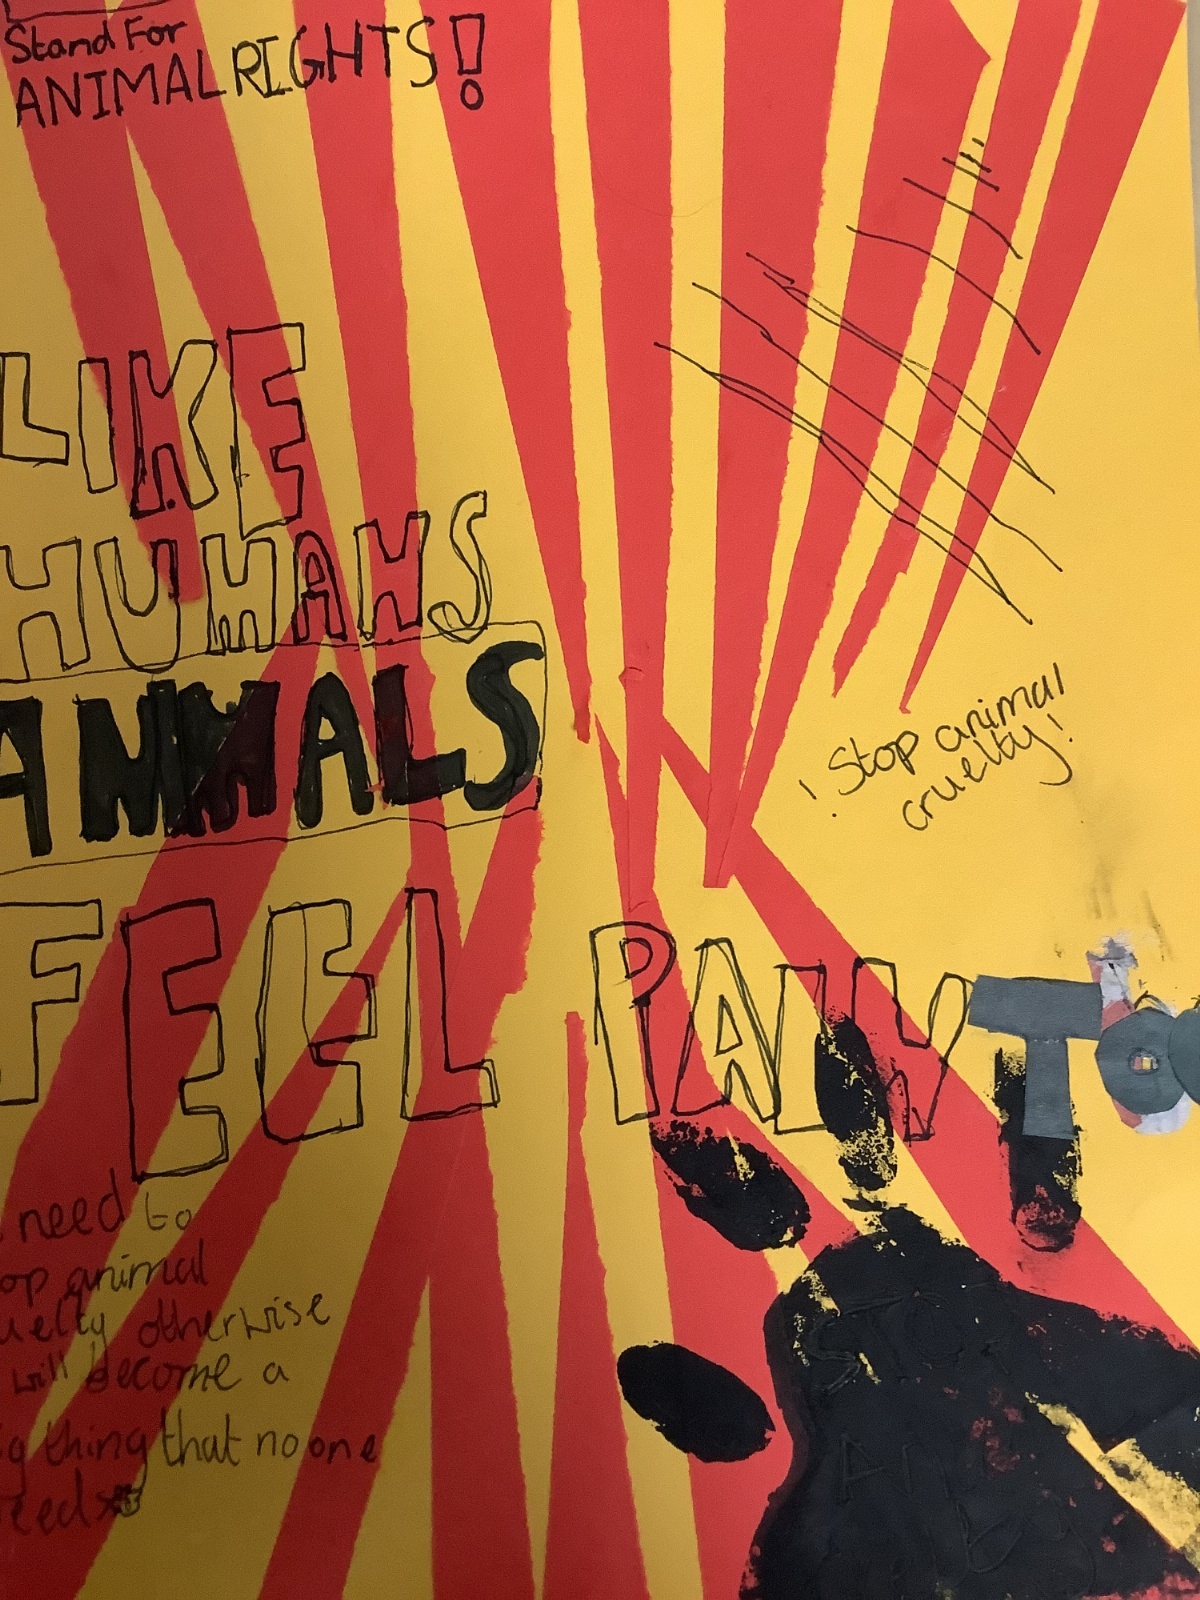 Stand For
ANIMAL RIGHTS!
LIKE
HUMANS
ANIMALS
FEEL PAIN TOO
! Stop animal
cruelty!
need to
op animal
uelty otherwise
will become a
g thing that no one
eeds
STOP